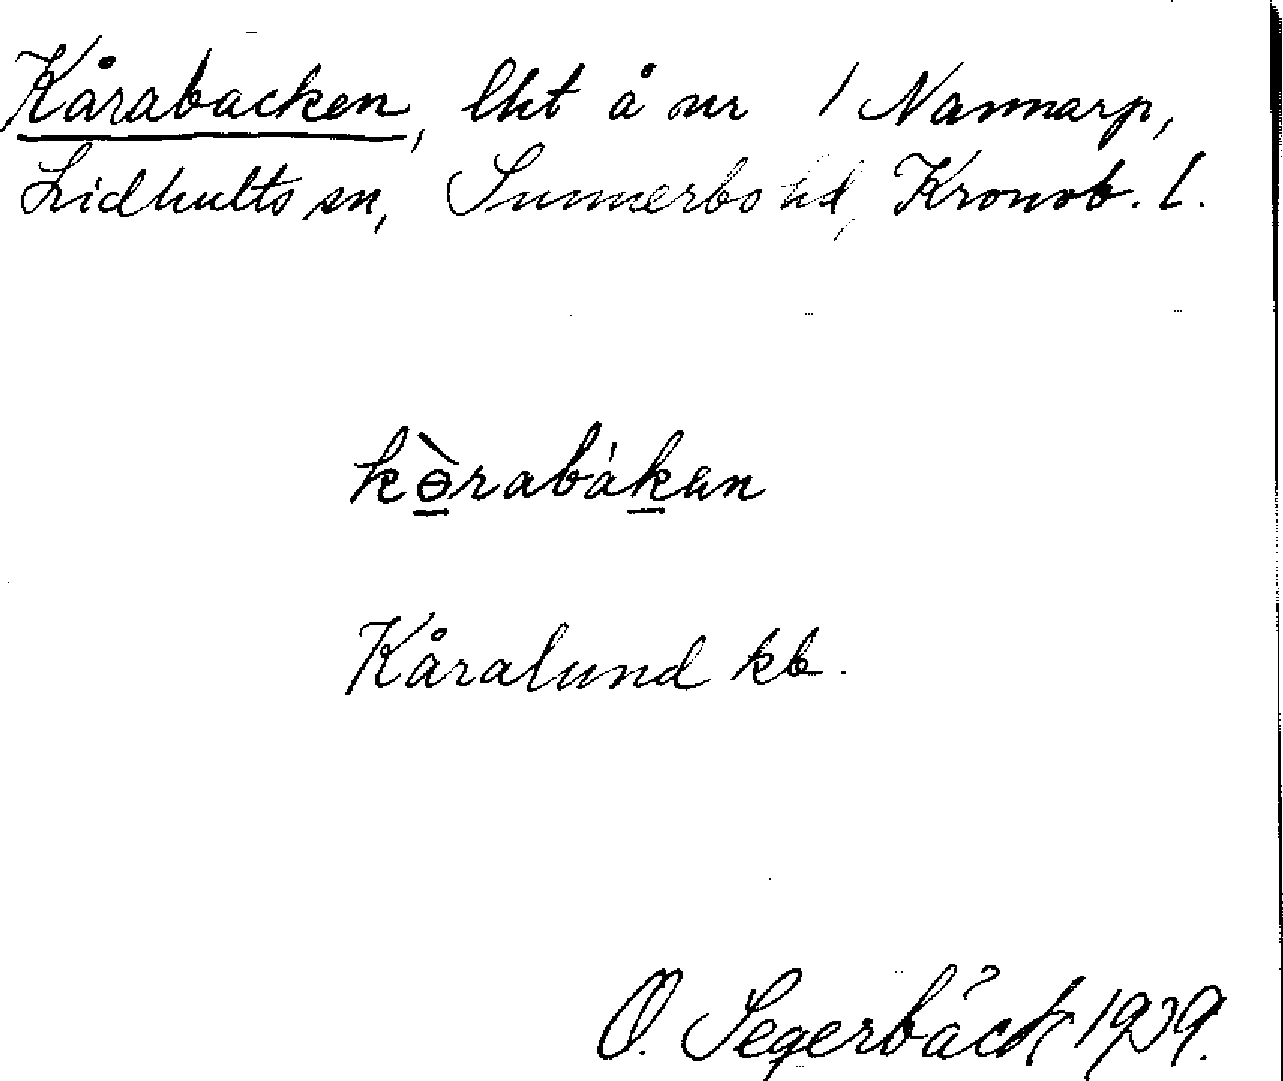 Kårabacken, lht å nr 1 Nannarp,
Lidhults sn, Sunnerbo hd, Kronob. l.
kɵ̀rabákan
Kåralund kb.
O. Segerbäck 1939.